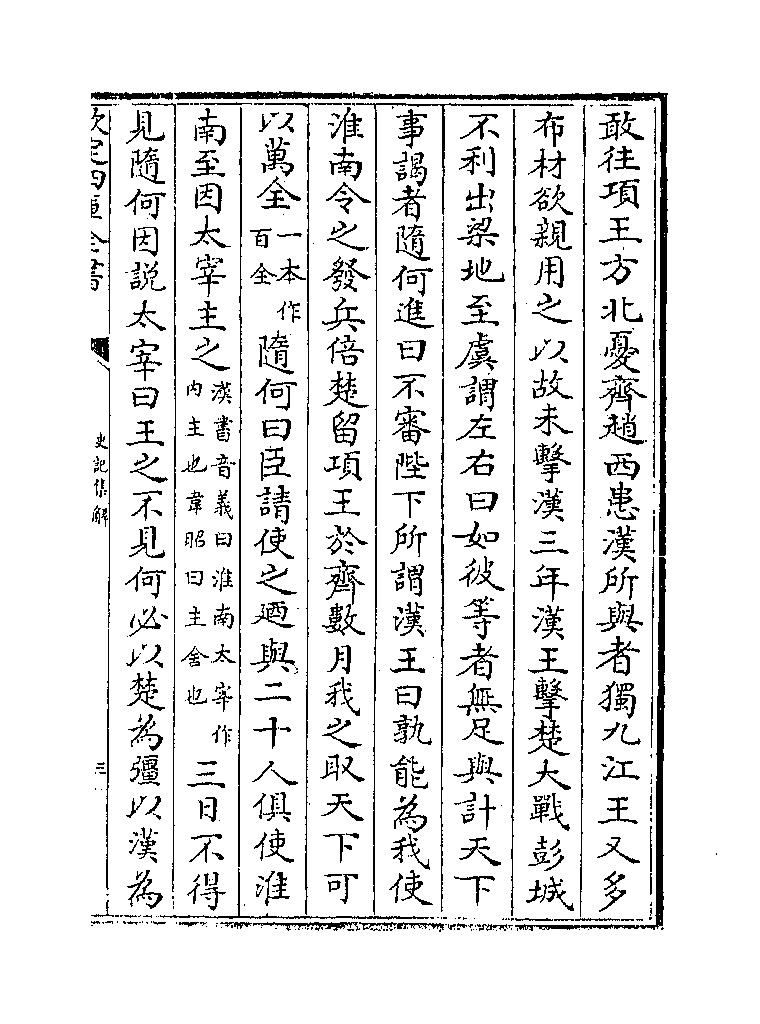 敢往項王方北憂齊趙西患漢所與者獨九江王又多
布材欲親用之以故未擊漢三年漢王擊楚大戰彭城
不利出梁地至虞謂左右曰如彼等者無足與計天下
事謁者隨何進曰不審陛下所謂漢王曰孰能為我使
淮南令之發兵倍楚留項王於齊數月我之取天下可
以萬全一本作百全隨何曰臣請使之廼與二十人俱使淮
南至因太宰主之漢書音義曰淮南太宰作內主也韋昭曰主舍也三日不得
見隨何因説太宰曰王之不見何必以楚為彊以漢為
欽定四庫全書 史記集解 三